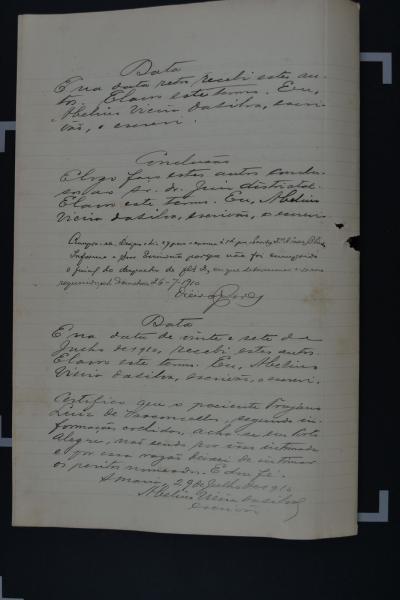 Data
E na data retro recebi estes au-
tos. Lavro este termo. Eu,
Abelino Vieira da Silva, escri-
vão, o escrevi.
Conclusão
E logo faço estes autos conclu-
sos ao sr. dr. Juiz districtal.
Lavro este termo. Eu, Abelino
Vieira da Silva, escrivão, o escrevi.
Informe o Snr Escrivão porque não foi
o juiz de despacho de fls 2, em que determinou
26-7-910
Data
E na data de vinte e sete de
Julho de 1910, recebi estes autos.
Lavro este termo. Eu, Abelino
Vieira da Silva, escrivão, o escrevi.
Certifico que o paciente Trajano
Luiz de Vasconcellos, segundo in-
formação colhidas, acha-se em Porto
Alegre, não sendo por isso intimado
e por essa razão deixei de intimar
os peritos nomeados. E dou fé.
S. Maria, 29 de Julho de 1910
Abelino Vieira da Silva
escrivão